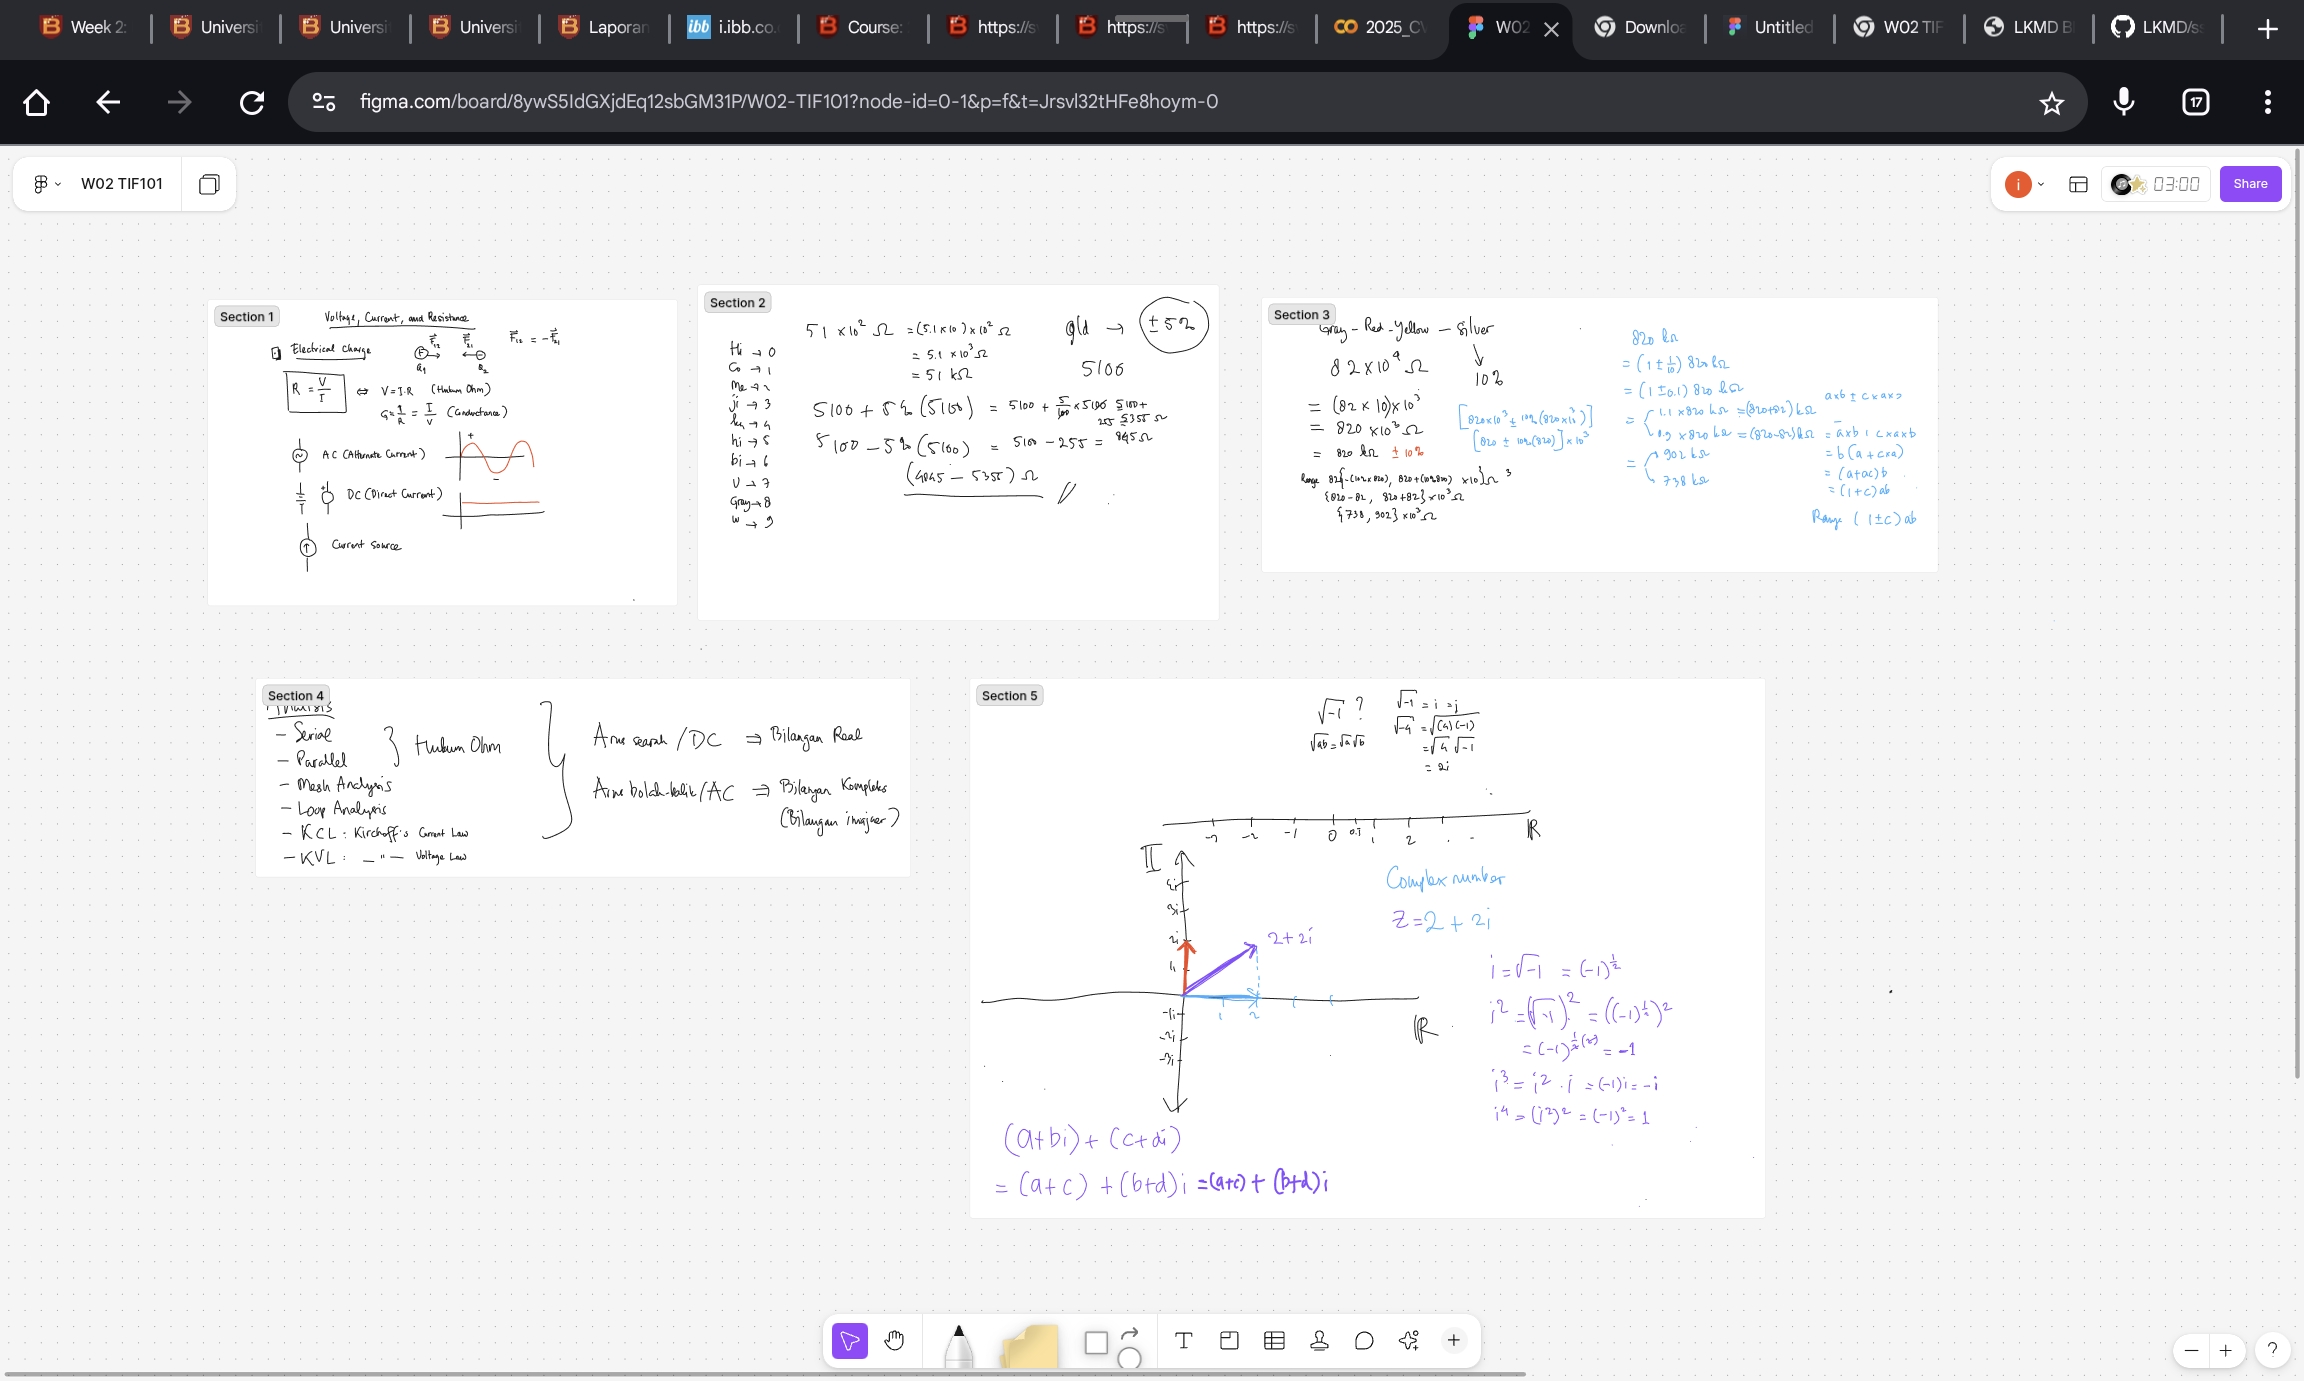 Week 2:
Universi
Universi
Universi
Laporan
i.ibb.co.
Course:
https://s
https://s
https://s
2025_C
W02
Downloa
Untitled
W02 TIF
LKMD B
LKMD/s
figma.com/board/8ywS5IdGXjdEq12sbGM31P/W02-TIF101?node-id=0-1&p=f&t=Jrsvl32tHFe8hoym-0
17
W02 TIF101
i
03:00
Share
Section 1
Voltage, Current, and Resistance
Electrical Charge
F₁₂ = -F₂₁
R = V/I ⇔ V = I.R (Hukum Ohm)
G = 1/R = I/V (Conductance)
AC (Alternate Current)
DC (Direct Current)
Current Source
Section 2
51 × 10² Ω = (5.1 × 10) × 10² Ω
= 5.1 × 10³ Ω
= 5.1 kΩ
gld → ±5%
5100
Hi → 0
Co → 1
Me → 2
ji → 3
ku → 4
hi → 5
bi → 6
U → 7
Gray → 8
W → 9
5100 + 5% (5100) = 5100 + 5/100 × 5100
5355 Ω
5100 - 5% (5100) = 5100 - 255 =
Section 3
Gray - Red - Yellow - Silver
82 × 10⁴ Ω
10%
= (82 × 10) × 10³
= 820 × 10³ Ω
= 820 kΩ ± 10%
[820×10³ ± 10% (820×10³)]
[820 ± 10% (820)] × 10³
{820-82, 820+82} × 10³ Ω
{738, 902} × 10³ Ω
820 kΩ
= (1 ± 1/10) 820 kΩ
= (1 ± 0.1) 820 kΩ
1.1 × 820 kΩ = (820+82) kΩ
0.9 × 820 kΩ = (820-82) kΩ
902 kΩ
738 kΩ
= axb + cxaxb
= b(a + cxa)
= (a+ac) b
= (1+c) ab
Range (1±c) ab
Section 4
Analisis
- Serial
- Parallel
Hukum Ohm
- Mesh Analysis
- Loop Analysis
- KCL : Kirchoff's Current Law
- KVL : — " — Voltage Law
Arus searah / DC ⇒ Bilangan Real
Arus bolak-balik / AC ⇒ Bilangan Kompleks
(Bilangan imajiner)
Section 5
√-1 ?
√ab = √a √b
√-1 = i = j
√-4 = √(4)(-1)
= √4 √-1
= 2i
-3 -2 -1 0 0.5 1 2 ℝ
II
4i
3i
2i
2+2i
1 2
-1i
-2i
-3i
ℝ
Complex number
Z = 2 + 2i
i = √-1 = (-1)^½
i² = (√-1)² = ((-1)^½)²
= (-1)^½(2) = -1
i³ = i² · i = (-1)i = -i
i⁴ = (i²)² = (-1)² = 1
(a+bi) + (c+di)
= (a+c) + (b+d)i = (a+c) + (b+d)i